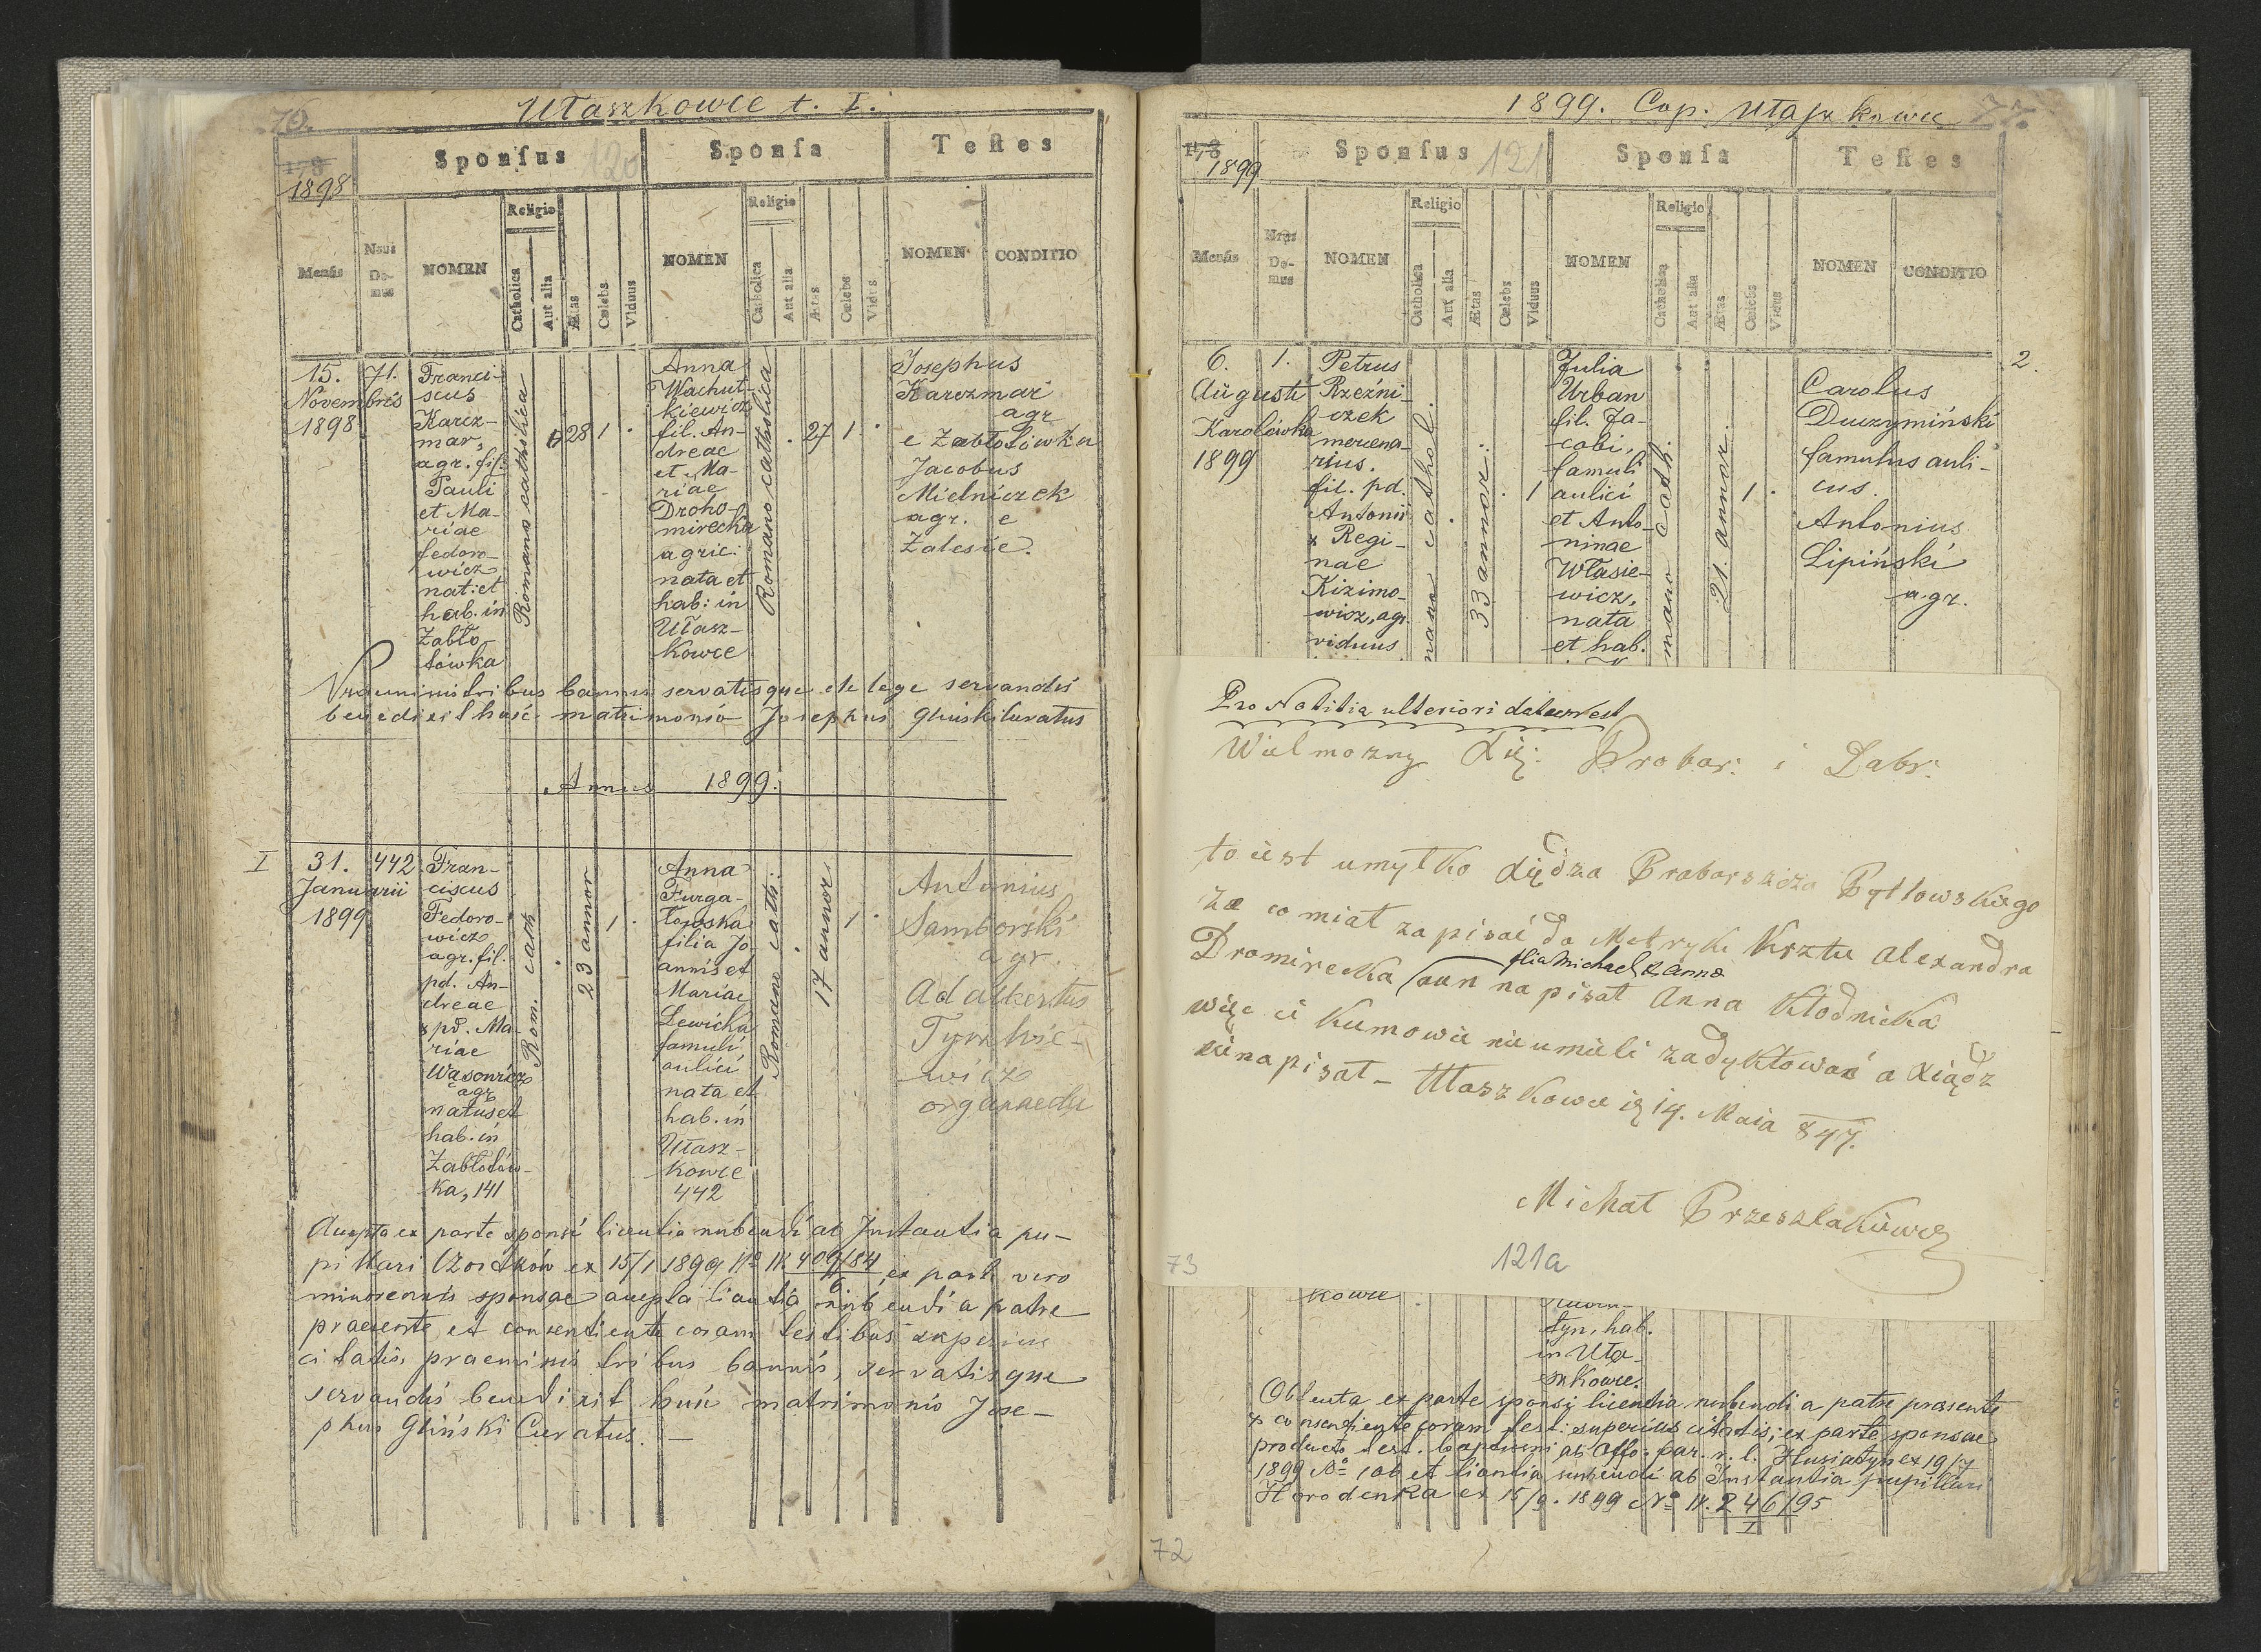 70.
Ułaszkowce t. I.
178
1898
Sponsus
120
Sponsa
Testes
Mensis
Nrus Domus
NOMEN
Religio
Catholica
Aut alia
Ætas
Cœlebs
Viduus
NOMEN
Religio
Catholica
Aut alia
Ætas
Cœlebs
Vidua
NOMEN
CONDITIO
15.
Novembris
1898
71.
Franci-
scus
Karcz-
mar,
agr. fil.
Pauli
et Ma-
riae
Fedoro-
wicz
nat: et
hab. in
Zabło-
tówka
Romano catholica
28
1
Anna
Wachut-
kiewicz
fil. An-
dreae
et Ma-
riae
Droho-
mirecka
agric:
nata et
hab: in
Ułasz-
kowce
Romano catholica
27
1
Josephus
Karczmar
agr
e Zabłotówka
Jacobus
Mielniczek
agr. e
Zalesie.
Praeuministribus bannis servatisque de lege servandis
benedixit huic matrimonio Josephus Gliński Curatus
Annus 1899.
I
31.
Januarii
1899
442
Fran-
ciscus
Fedoro-
wicz
agr. fil.
pd. An-
dreae
& pd. Ma-
riae
Wąsowicz
agr
natus et
hab. in
Zabłotów-
ka, 141
Rom. cath
23 annor
1
Anna
Furga-
łowska
filia Jo-
annis et
Mariae
Lewicka
famuli
aulici
nata et
hab. in
Ułasz-
kowce
442
Romano cath:
17 annor
1
Antonius
Samborski
agr.
Adalbertus
organaedu
Accepta ex parte sponsi licentia nubendi ab Instantia pu-
pillari Czortków ex 15/1 1899 No IV 409/84 ex parte vero
6
minorennis sponsae accepta licentia nubendi a patre
praesente et consentiente coram testibus superius
citatis, praemissis tribus bannis, servatisque
servandis benedixit huic matrimonio Jose-
phus Gliński Curatus. —
1899. Cop. Ułaszkowce
178
1899
Sponsus
121
Sponsa
Testes
Mensis
Nrus Domus
NOMEN
Religio
Catholica
Aut alia
Ætas
Cœlebs
Viduus
NOMEN
Religio
Catholica
Aut alia
Ætas
Cœlebs
Viduus
NOMEN
CONDITIO
6.
Augusti
Karolówka
1899
1.
Petrus
Rzeźni-
czek
mercena-
rius.
fil. pd.
Antonii
& Regi-
nae
Kizimo-
wicz, agr.
viduus
mano cathol.
33 annor.
1
Julia
Urban
fil. Ja-
cobi,
famuli
aulici
et Anto-
ninae
Własie-
wicz,
nata
et hab.
mano cath.
21. annor.
1
Carolus
Duczymiński
famulus auli-
cus.
Antonius
Lipiński
agr.
2.
Pro Notitia ulteriori datum est
Wielmozny Xię: Probos: i Dobr:
to iest umyłko Xiędza Proboszcza Pytlowskiego
ze co miał zapisać do Metryki Krztu Alexandra
filia Michael & Anna
Dromirecka (oun napisał Anna Kłodnicka
więc ci Kumowie nieumieli zadyktować a Xiądz
zínapisał – Ułaszkowce ią 14. Maia 847.
Michał Przeszlakiewicz
73
121a
kowce
tyn, hab.
in Uła-
szkowce.
Obtenta ex parte sponsi licentia nubendi a patre praesente
& consentiente coram test: superius citatis; ex parte sponsae
producto test. baptismi ab Offo. par. r. l. Husiatyn ex 19/7
1899 No 106 et licentia nubendi ab Instantia pupillari
Horodenka ex 15/9. 1899 No IV. 246/95
I
72